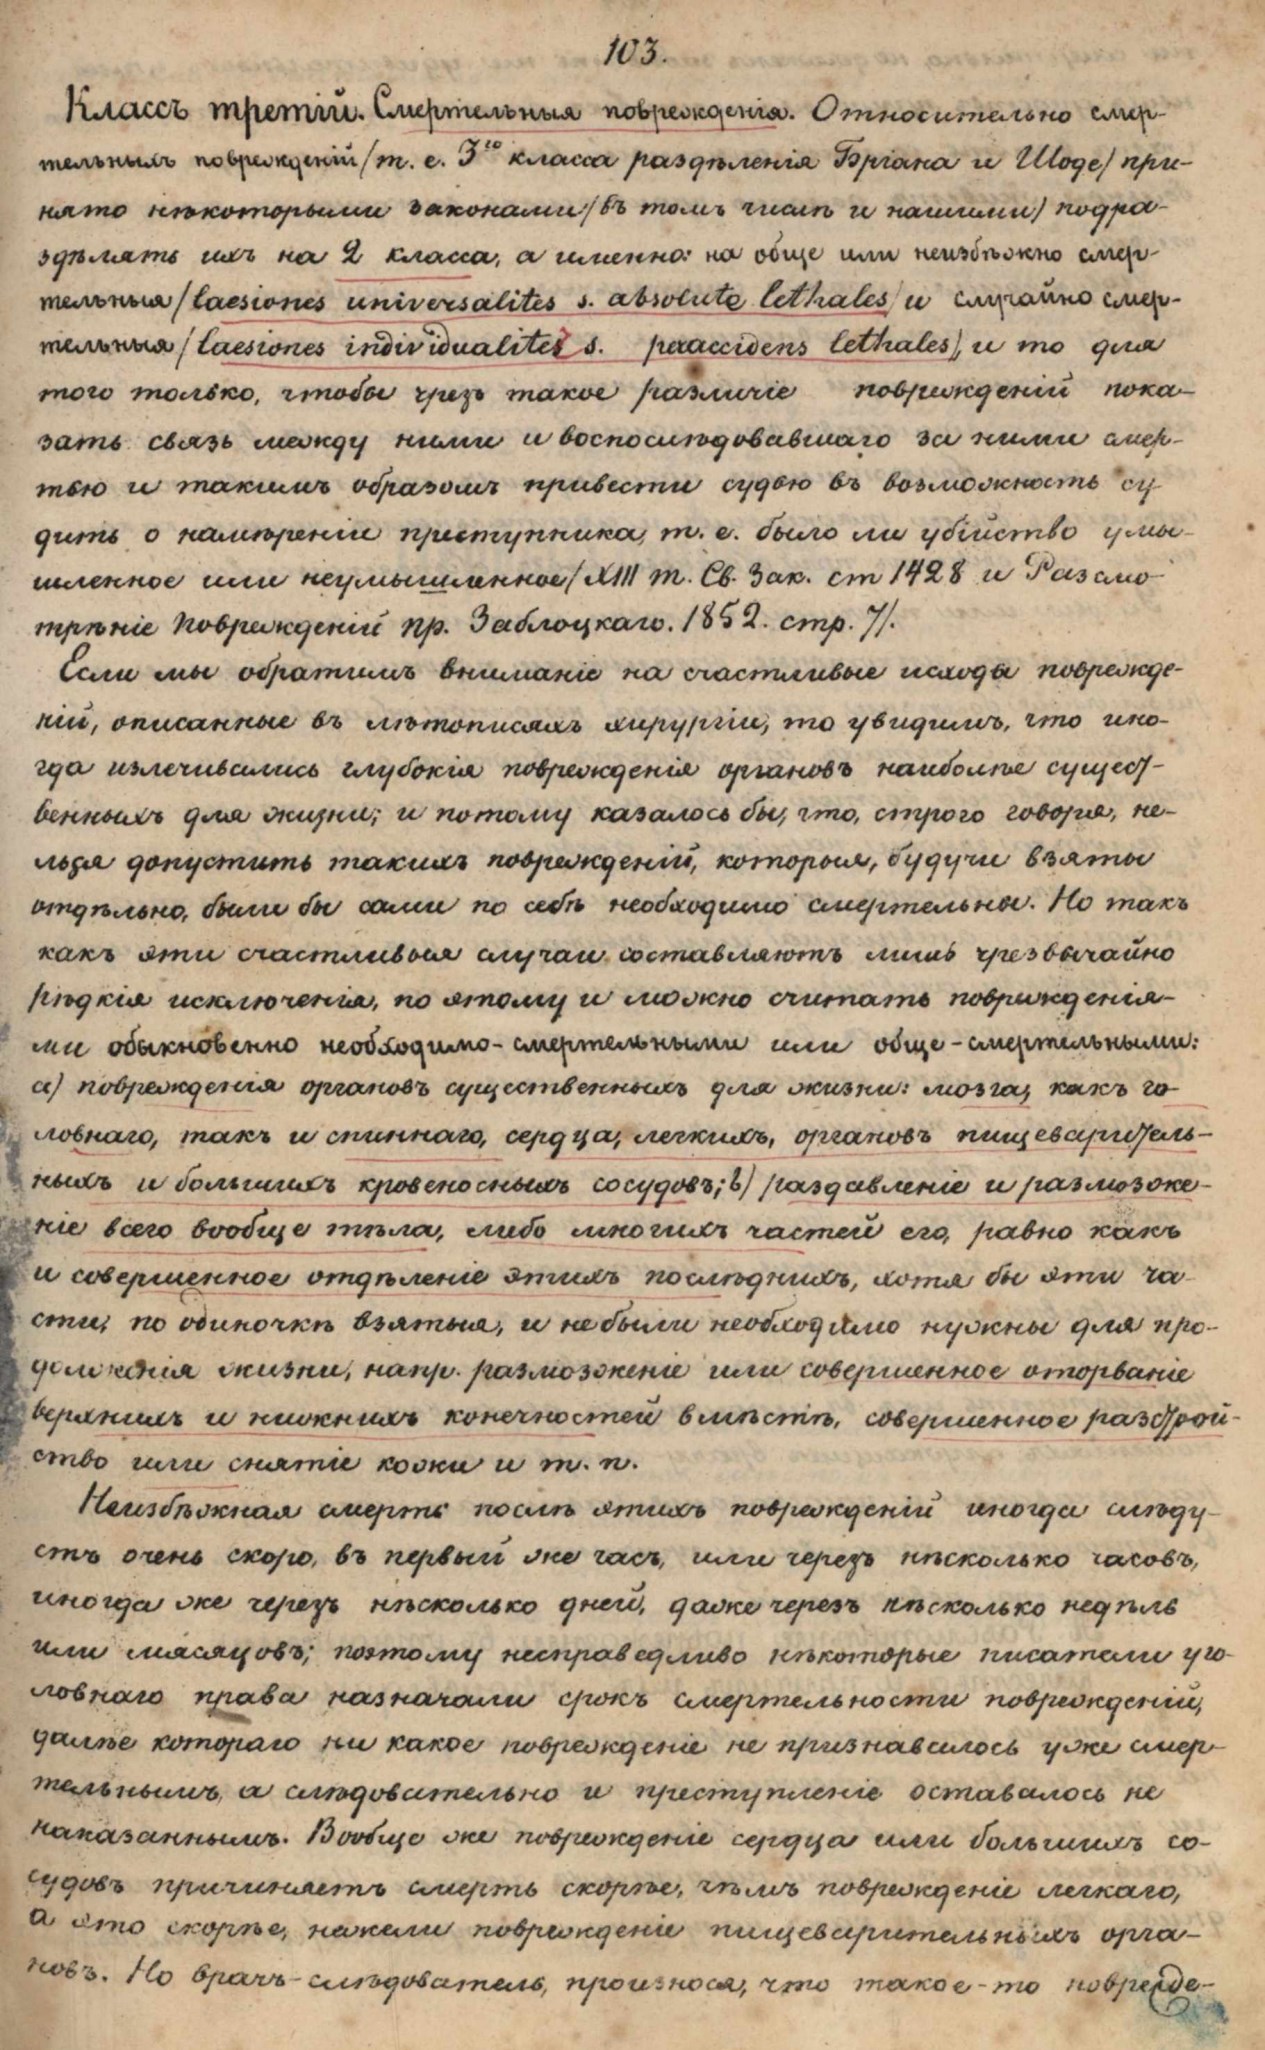 103.
Классъ третій. Смертельныя поврежденія. Относительно смер-
тельныхъ поврежденій /т. е. 3го класса раздѣленія Бріана и Шоде/ при-
нято нѣкоторыми законами /въ томъ числѣ и нашими/ подра-
здѣлять ихъ на 2 класса, а именно: на обще или неизбѣжно смер-
тельныя /laesiones universalites s. absolute lethales/ и случайно смер-
тельныя /laesiones individualites s. peraccidens lethales/, и то для
того только, чтобы чрезъ такое различіе поврежденій пока-
зать связь между ними и воспослѣдовавшаго за ними смер-
тью и такимъ образомъ привести судью въ возможность су
дить о намѣреніи преступника, т. е. было ли убійство умы-
шленное или неумышленное /XIII т. Св. Зак. ст 1428 и Разсмо-
трѣніе Поврежденій пр. Заблоцкаго. 1852. стр. 7/.
Если мы обратимъ вниманіе на счастливые исходы поврежде-
ній, описанные въ лѣтописяхъ хирургіи, то увидимъ, что ино-
гда излечивались глубокія поврежденія органовъ наиболѣе сущест-
венныхъ для жизни; и потому казалось бы, что, строго говоря, не-
льзя допустить такихъ поврежденій, которыя, будучи взяты
отдѣльно, были бы сами по себѣ необходимо смертельны. Но такъ
какъ эти счастливыя случаи составляютъ лишь чрезвычайно
рѣдкія исключенія, по этому и можно считать поврежденія-
ми обыкновенно необходимо-смертельными или обще-смертельными:
а) поврежденія органовъ существенныхъ для жизни: мозга, какъ го-
ловнаго, такъ и спиннаго, сердца, легкихъ, органовъ пищеваритель-
ныхъ и большихъ кровеносныхъ сосудовъ; в) раздавленіе и размозже-
ніе всего вообще тѣла, либо многихъ частей его, равно какъ
и совершенное отдѣленіе этихъ послѣднихъ, хотя бы эти ча-
сти, по одиночкѣ взятыя, и не были необходимо нужны для про-
долженія жизни, напр. размозженіе или совершенное оторваніе
верхнихъ и нижнихъ конечностей вмѣстѣ, совершенное разстрой-
ство или снятіе кожи и т. п.
Неизбѣжная смерть послѣ этихъ поврежденій иногда слѣду-
етъ очень скоро, въ первый же часъ, или черезъ нѣсколько часовъ,
иногда же черезъ нѣсколько дней, даже черезъ нѣсколько недѣль
или мясяцовъ; поэтому несправедливо нѣкоторые писатели уго-
ловнаго права назначали срокъ смертельности поврежденій,
далѣе котораго ни какое поврежденіе не признавалось уже смер-
тельнымъ, а слѣдовательно и преступленіе оставалось не
наказаннымъ. Вообще же поврежденіе сердца или большихъ со-
судовъ причиняетъ смерть скорѣе, чѣмъ поврежденіе легкаго,
а это скорѣе, нежели поврежденіе пищеварительныхъ орга-
новъ. Но врачъ-слѣдователь, произнося, что такое-то поврежде-